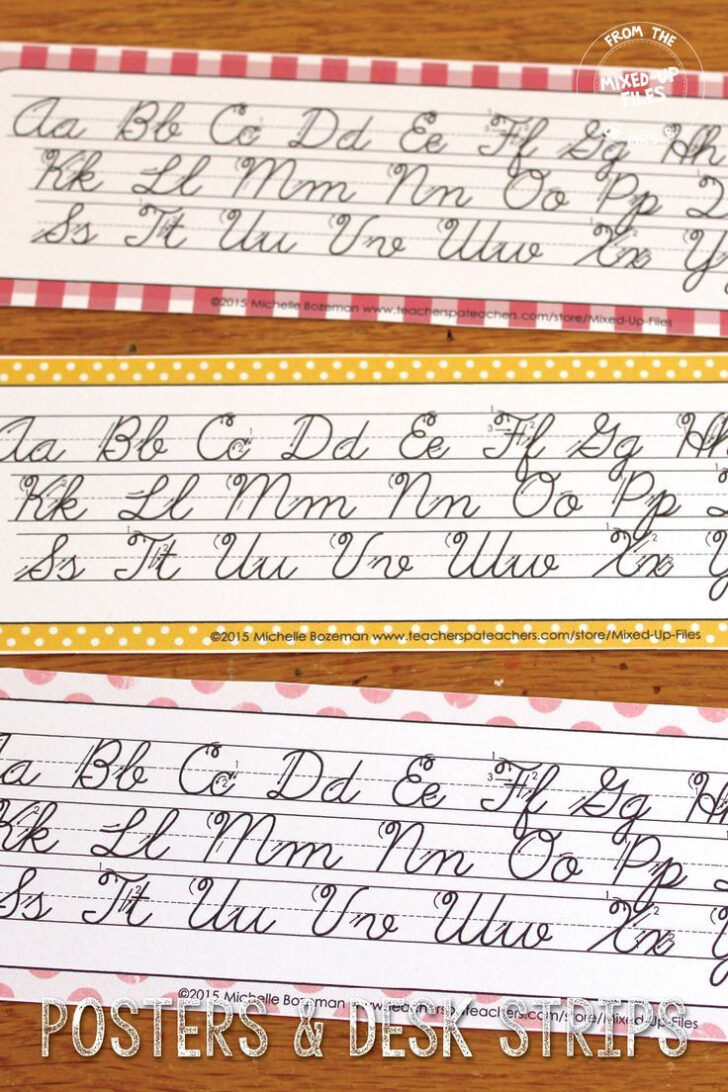 FROM THE
MIXED-UP
FILES
Aa Bb Cc Dd Ee Ff Gg Hh
Kk Ll Mm Nn Oo Pp
Ss Tt Uu Vv Ww Xx Y
©2015 Michelle Bozeman www.teacherspateachers.com/store/Mixed-Up-Files
Aa Bb Cc Dd Ee Ff Gg Hh
Kk Ll Mm Nn Oo Pp
Ss Tt Uu Vv Ww Xx Y
©2015 Michelle Bozeman www.teacherspateachers.com/store/Mixed-Up-Files
a Bb Cc Dd Ee Ff Gg H
Kk Ll Mm Nn Oo Pp
Ss Tt Uu Vv Ww Xx
©2015 Michelle Bozeman www.teacherspateachers.com/store/Mixed-Up-Files
POSTERS & DESK STRIPS